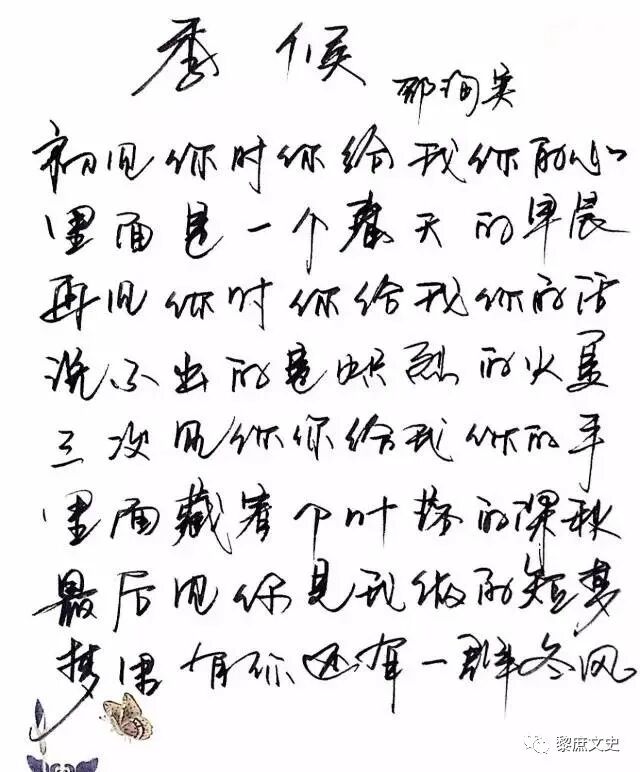 季候
邵洵美
初见你时你给我你的心
里面是一个春天的早晨
再见你时你给我你的话
说不出的是炽烈的火星
三次见你你给我你的手
里面藏着个叶落的深秋
最后见你是我做的短梦
梦里有你还有一群冬风
黎庶文史